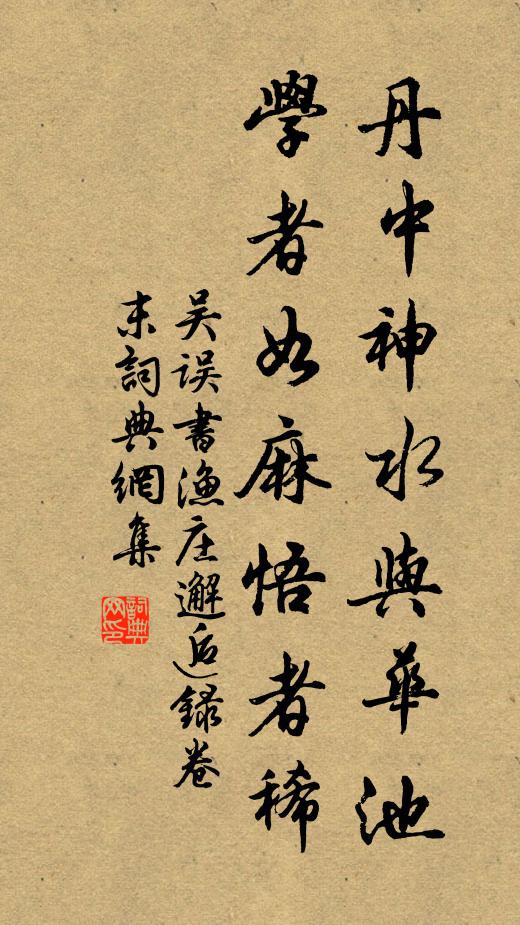 丹中神水與華池
學者如麻悟者稀
吴误書漁庄邂逅録卷
末詞典網集
詞典
网印